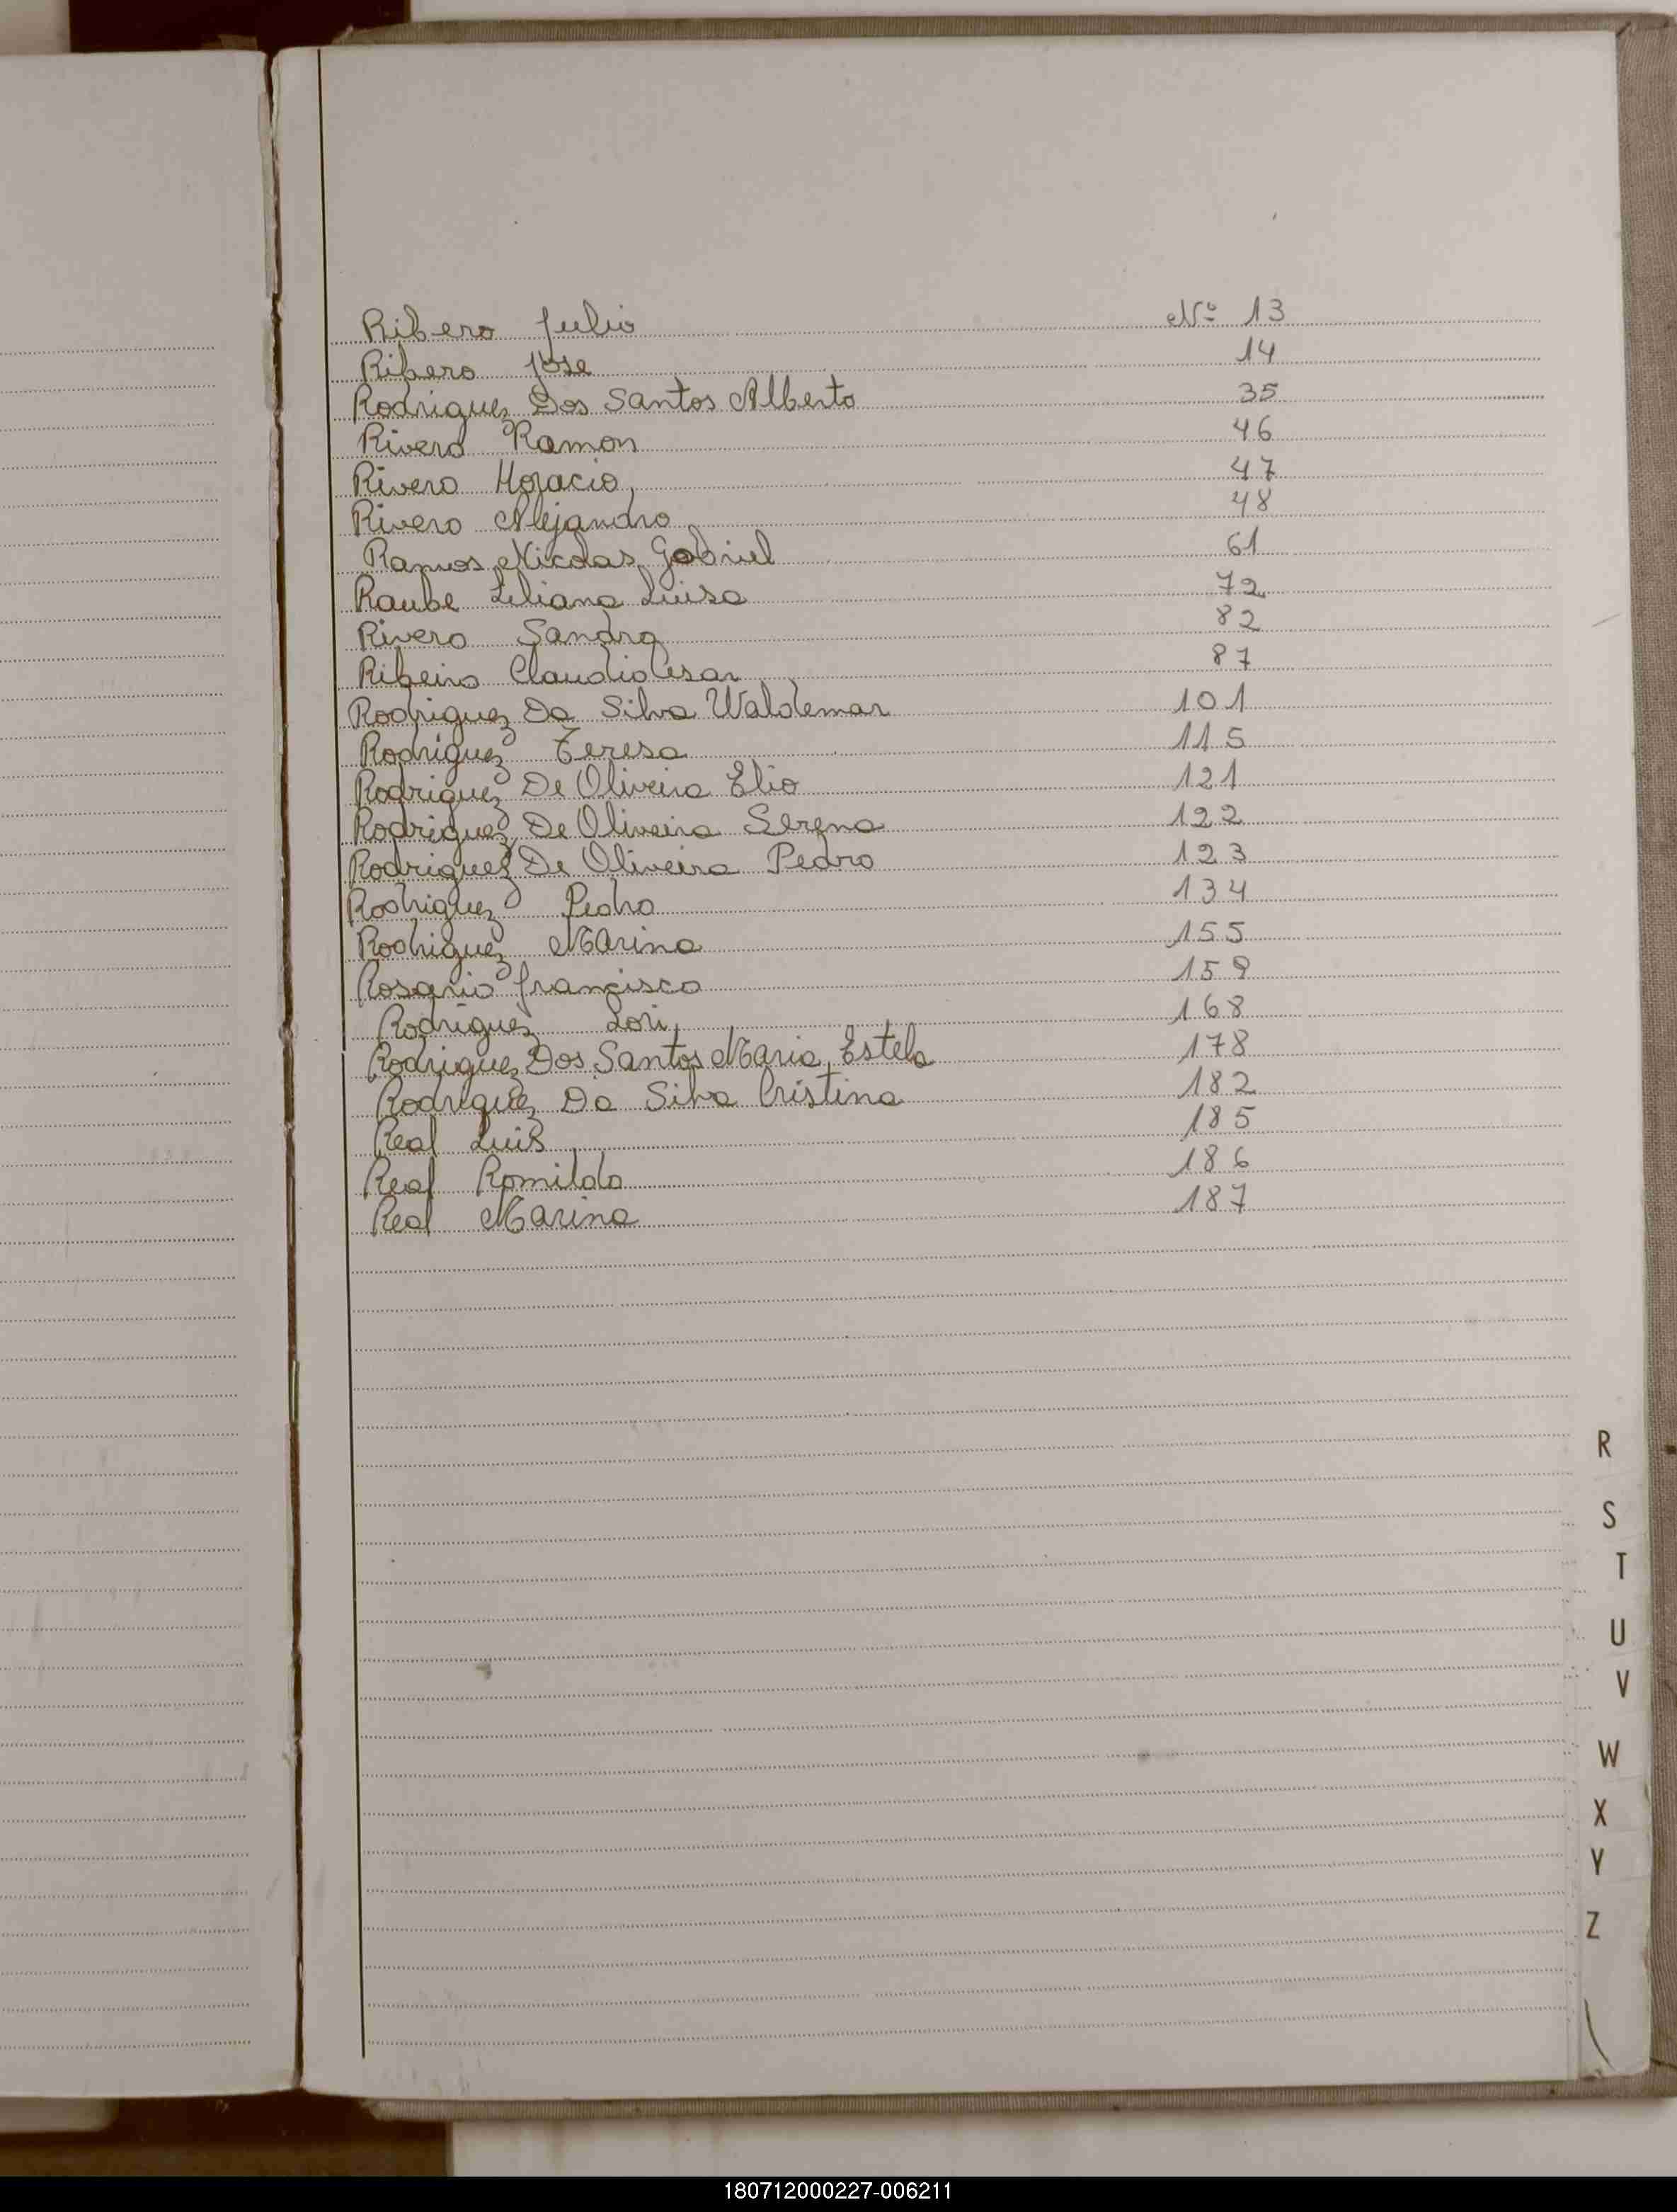 Ribero Julio Nº 13
Ribero Jose 14
Rodriguez Dos Santos Alberto 35
Rivero Ramon 46
Rivero Horacio 47
Rivero Alejandro 48
Ramos Nicolas Gabriel 61
Raube Liliana Luisa 72
Rivero Sandra 82
Ribeiro Claudio Cesar 87
Rodriguez Da Silva Waldemar 101
Rodriguez Teresa 115
Rodriguez De Oliveira Elio 121
Rodriguez De Oliveira Serena 122
Rodriguez De Oliveira Pedro 123
Rodriguez Pedro 134
Rodriguez Marina 155
Rosario Francisco 159
Rodriguez Lori 168
Rodriguez Dos Santos Maria Estela 178
Rodriguez Da Silva Cristina 182
Real Luis 185
Real Romildo 186
Real Marina 187
R
S
T
U
V
W
X
Y
Z
180712000227-006211